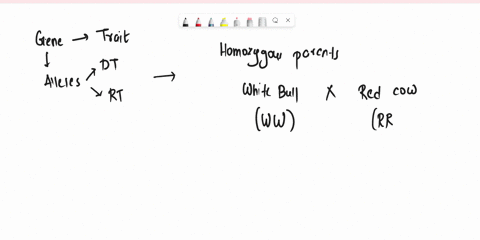 Gene → Trait
Alleles
DT
RT
→ Homozygous parents
White Bull X Red cow
(WW) (RR